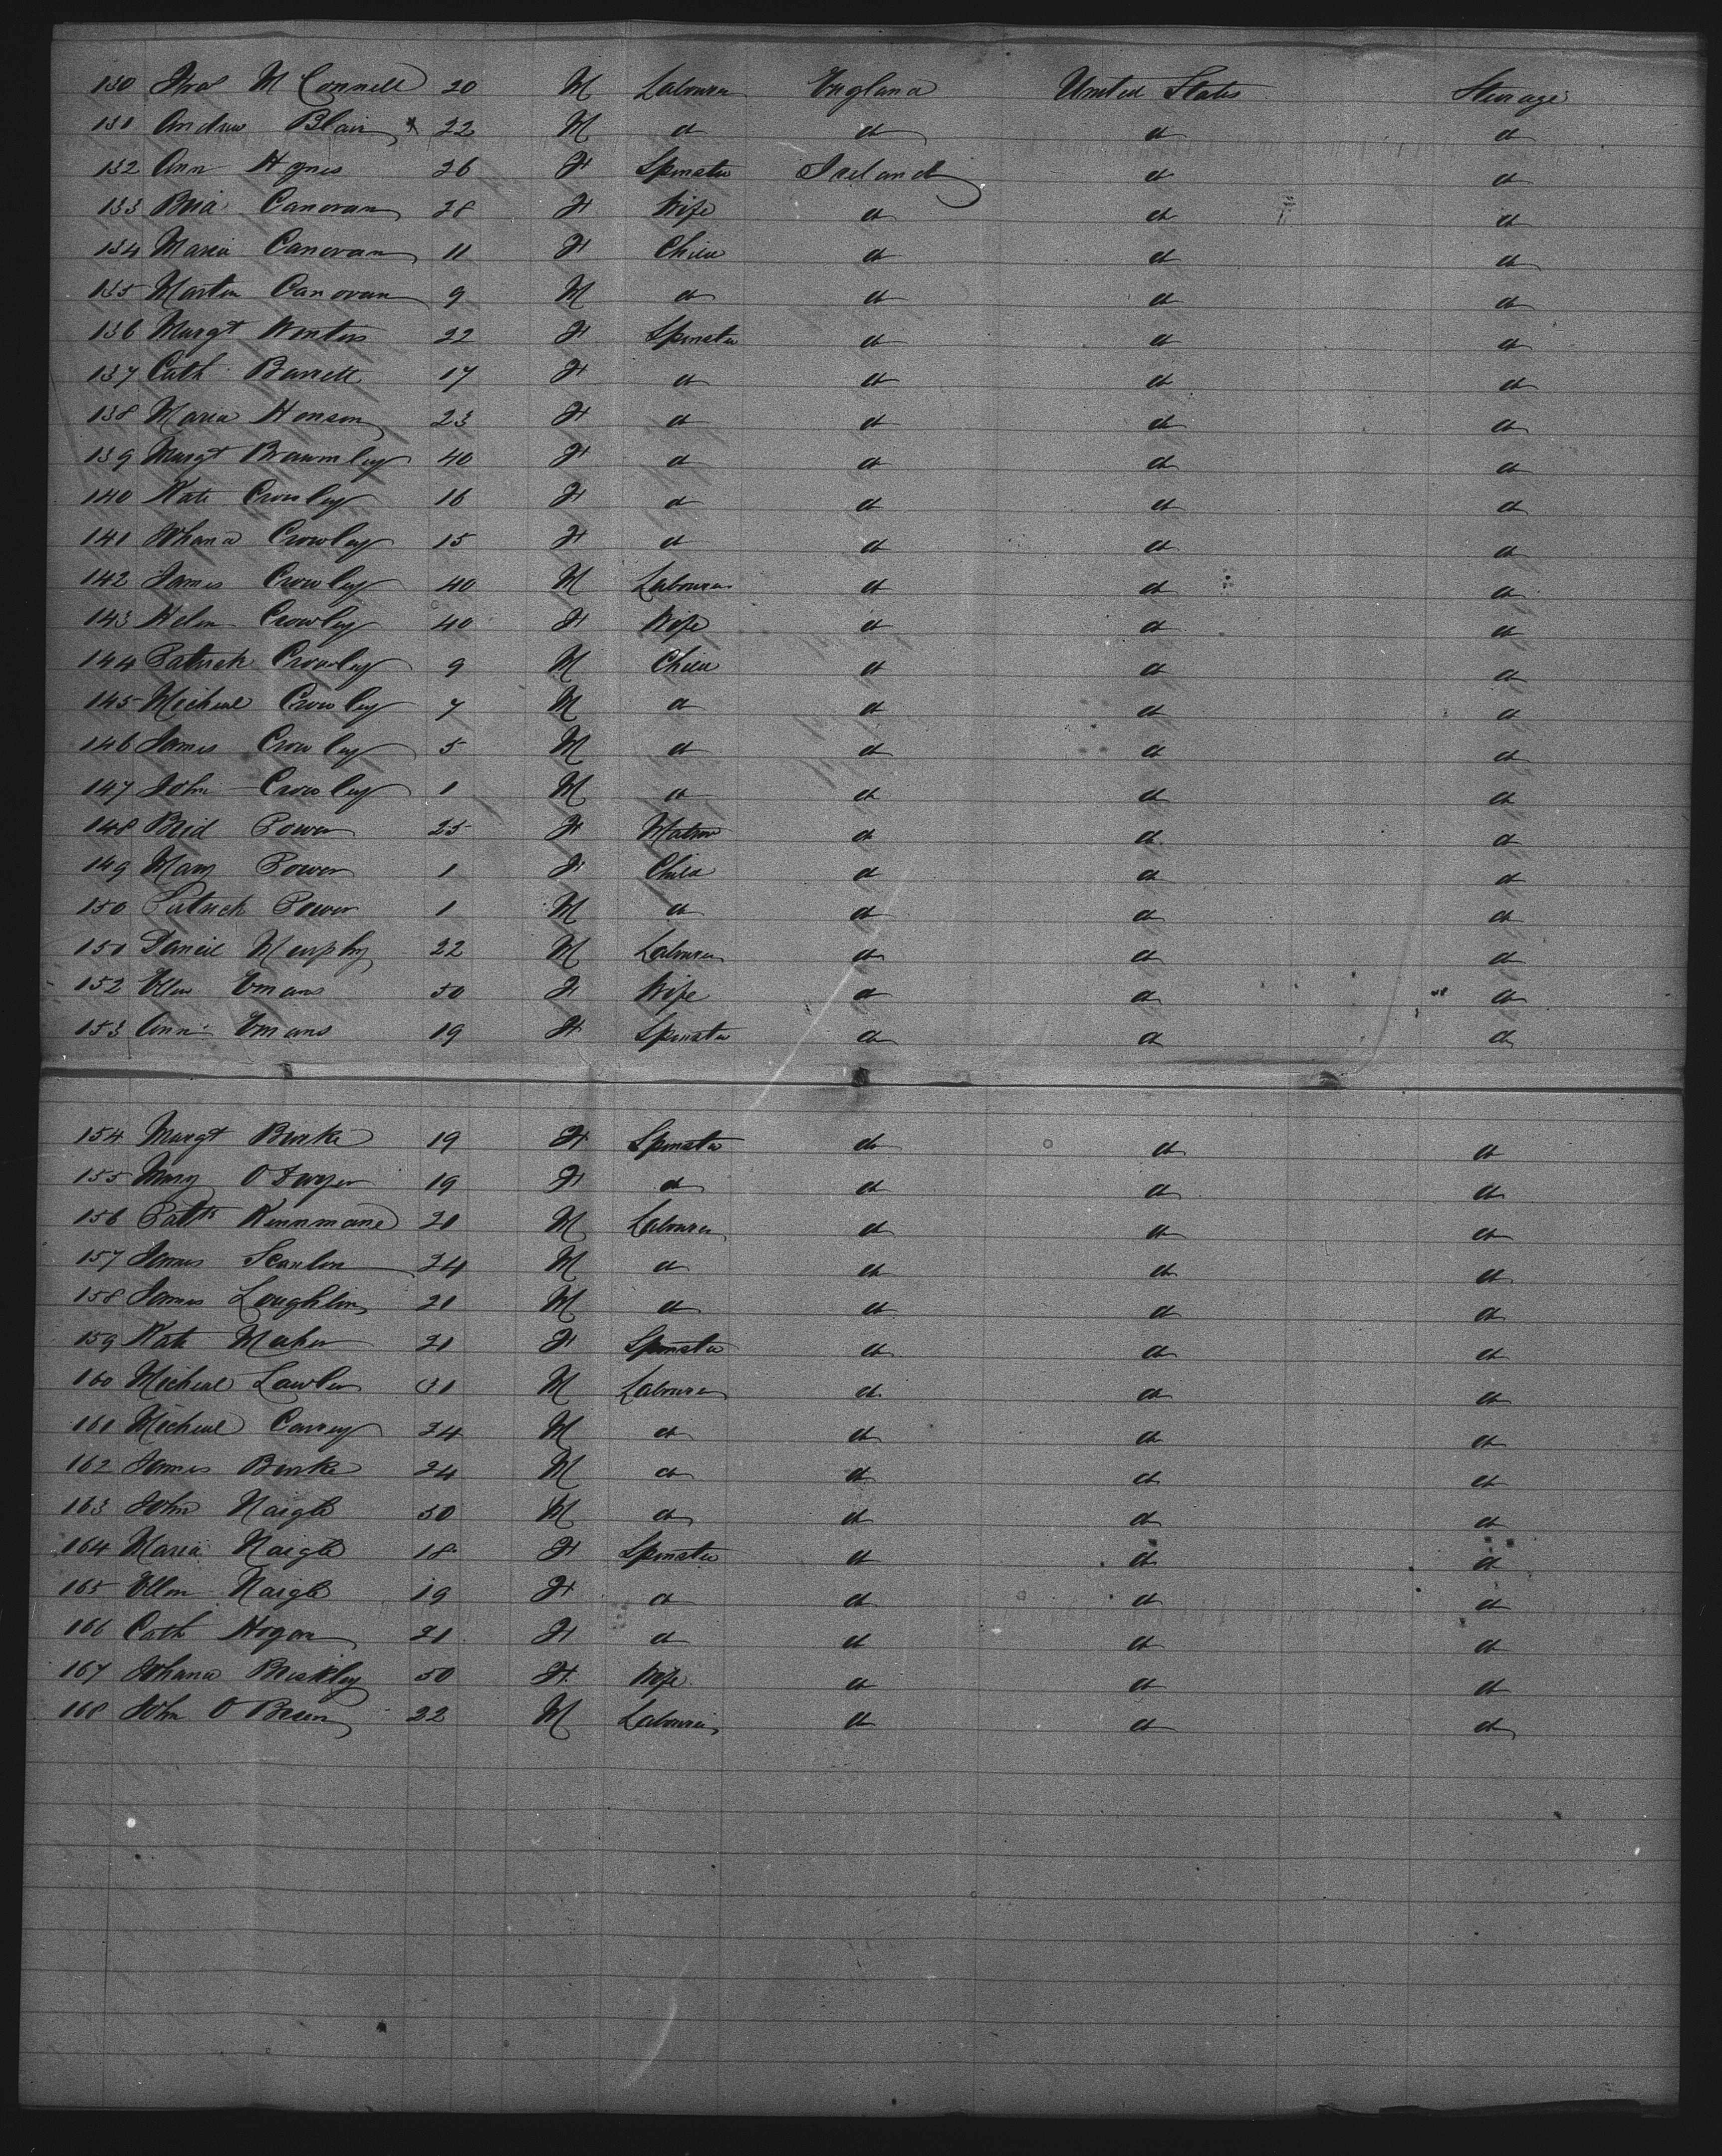 130 Thos McConnell 20 M Labourer England United States Steerage
131 Andrew Blair x 22 M do do do do
132 Ann Hynes 26 F Spinster Ireland do do
133 Brid Canovan 28 F Wife do do do
134 Maria Canovan 11 F Child do do do
135 Martin Canovan 9 M do do do do
136 Margt Winters 22 F Spinster do do do
137 Cath Barrett 17 F do do do do
138 Maria Henson 23 F do do do do
139 Margt Braumley 40 F do do do do
140 Kate Crowley 16 F do do do do
141 Johana Crowley 15 F do do do do
142 James Crowley 40 M Labourer do do do
143 Helen Crowley 40 F Wife do do do
144 Patrick Crowley 9 M Child do do do
145 Micheal Crowley 7 M do do do do
146 James Crowley 5 M do do do do
147 John Crowley 1 M do do do do
148 Brid Power 25 F Matron do do do
149 Mary Power 1 F Child do do do
150 Patrick Power 1 M do do do do
151 Daniel Murphy 22 M Labourer do do do
152 Ellen Emans 50 F Wife do do do
153 Ann Emans 19 F Spinster do do do
154 Margt Burke 19 F Spinster do do do
155 Mary O Dwyer 19 F do do do do
156 Patk Kinnmane 21 M Labourer do do do
157 James Scanlon 24 M do do do do
158 James Loughlin 21 M do do do do
159 Kate Maher 21 F Spinster do do do
160 Micheal Lawler 31 M Labourer do do do
161 Micheal Carrey 24 M do do do do
162 James Burke 24 M do do do do
163 John Naigle 50 M do do do do
164 Maria Naigle 18 F Spinster do do do
165 Ellen Naigle 19 F do do do do
166 Cath Hogan 21 F do do do do
167 Johana Briskley 50 F Wife do do do
168 John O Brien 22 M Labourer do do do